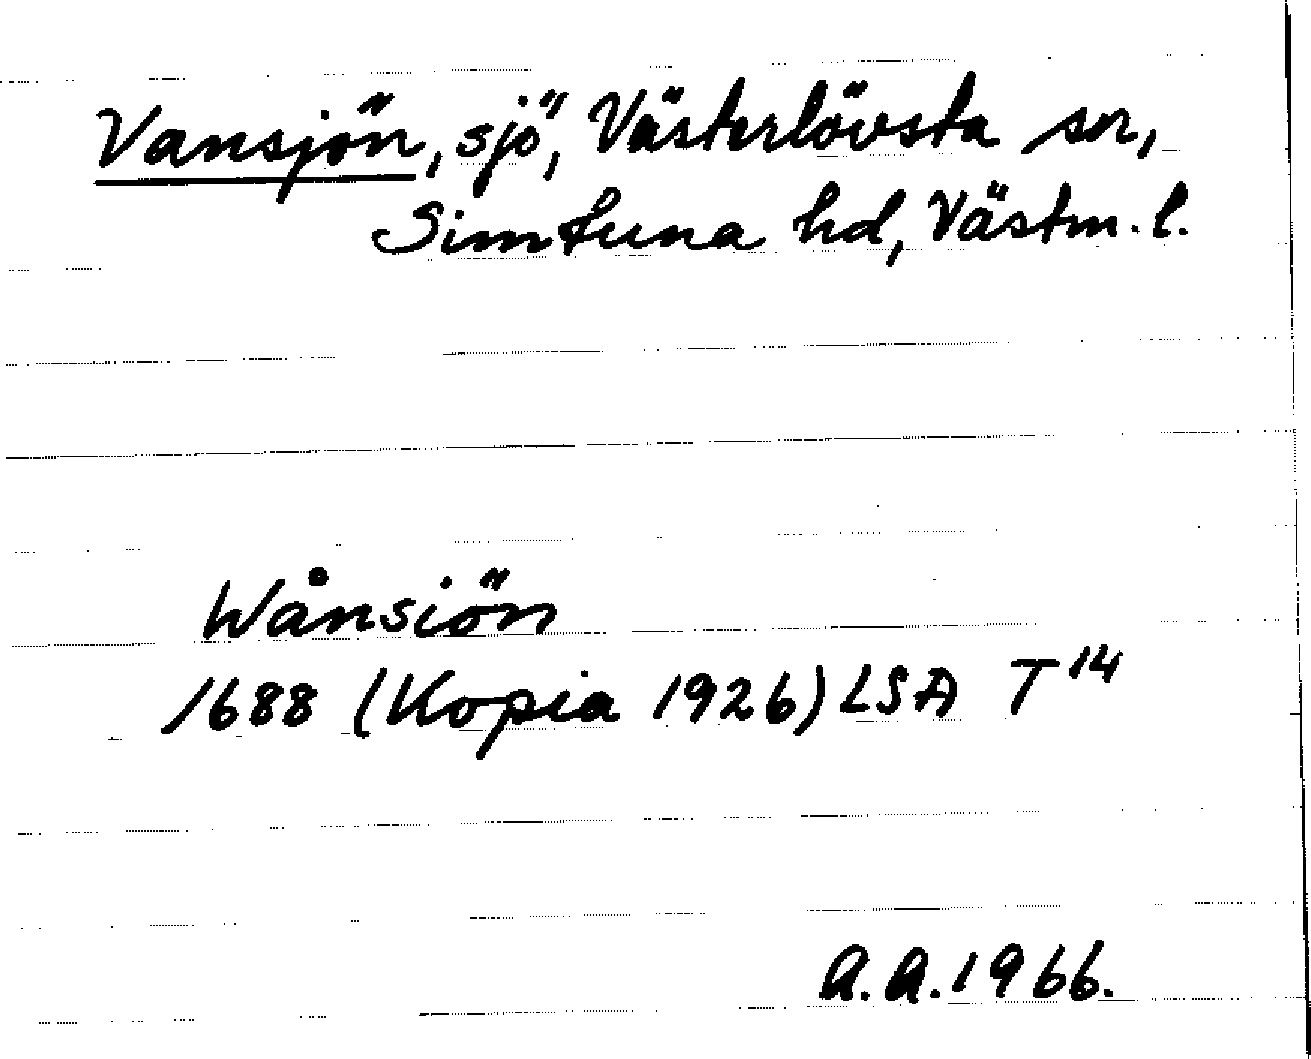 Vansjön, sjö, Västerlövsta sn,
Simtuna hd, Västm. l.
Wånsiön
1688 (Kopia 1926) LSA T¹⁴
A.A. 1966.